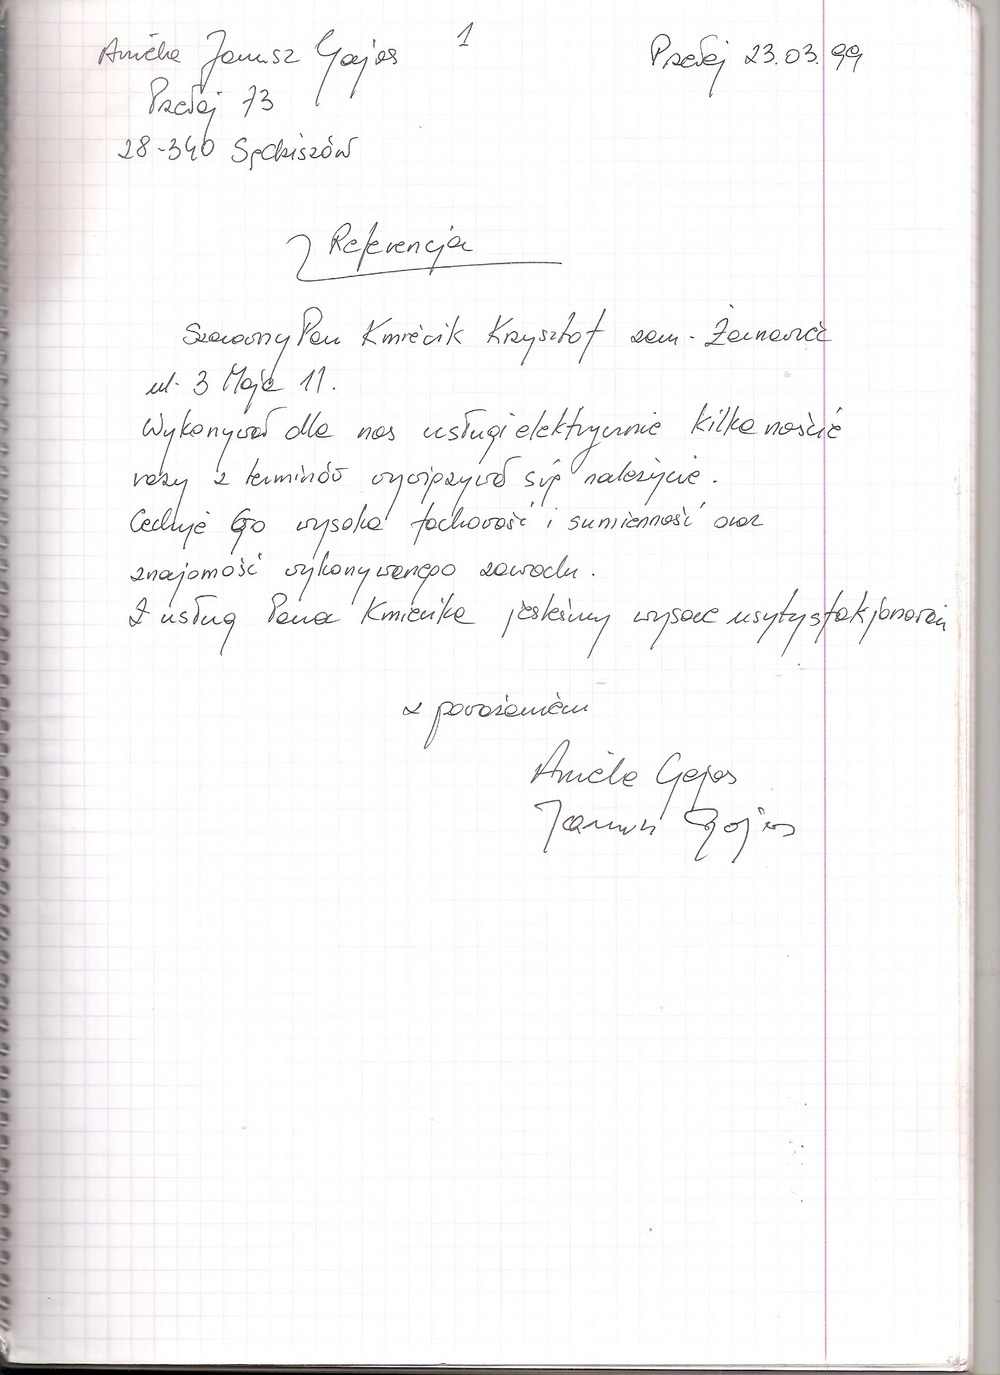 Aniela Janusz Gajos 1 Przełaj 23.03.99
Przełaj 73
28-340 Sędziszów
Referencja
Szanowny Pan Kmiecik Krzysztof zam. Żarnowiec
ul. 3 Maja 11.
Wykonywał dla nas usługi elektryczne kilkanaście
razy z terminów wywiązywał się należycie.
Cechuje Go wysoka fachowość i sumienność oraz
znajomość wykonywanego zawodu.
Z usług Pana Kmiecika jesteśmy wysoce
z poważaniem
Aniela Gajos
Janusz Gajos